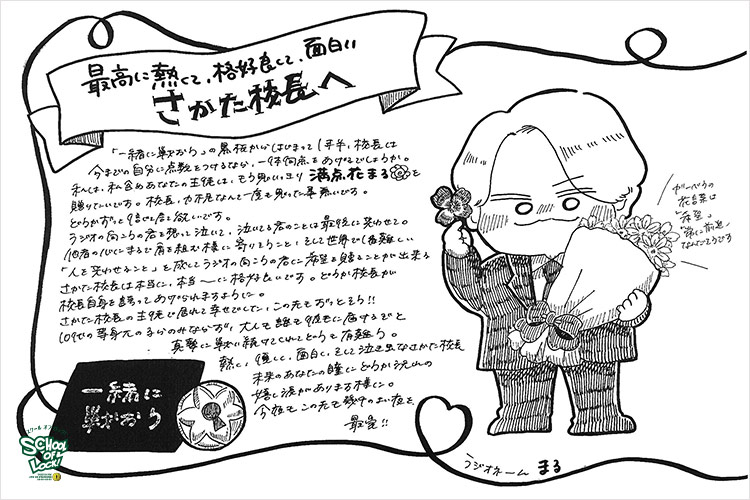 最高に熱くて、格好良くて、面白い
さかた校長へ
「一緒に戦おう」の黒板からはじまって1年半、校長は
今までの自分に点数をつけるなら、一体何点をあげるでしょうか。
私は、私含めあなたの生徒は、そう思いっきり 満点花まる を
贈りたいです。校長、力不足なんて一度も思った事無いです。
どうかずっと信じて居て欲しいです。
ラジオの向こうの君を想って泣いて、泣いてる君のことは最後に笑わせて。
他者の心にまるで肩を組む様に寄りそうこと、そして世界で1番難しい
「人を笑わせること」を成してラジオの向こうの君に希望を贈ることが出来る
さかた校長は本当に、本当〜に格好良いです。どうか校長が
校長自身を誇ってあげられますように。
さかた校長の生徒で居れて幸せでした、この先もずっとそう!!
10代の等身大の子らのみならず、大人も誰も彼もに届するぞと
真摯に戦い続けてくれてどうも有難う。
熱い、優しい、面白い、そして泣き虫なさかた校長
未来のあなたの瞳にどうか沢山の
嬉し涙がありまする様に。
今夜も、この先も残りの
最愛!!
がーべらの
花言葉は
「希望」
「常に前進」
なんだそうです
一緒に
戦おう
SCHOOL
OF
LOCK!
ラジオネーム まる